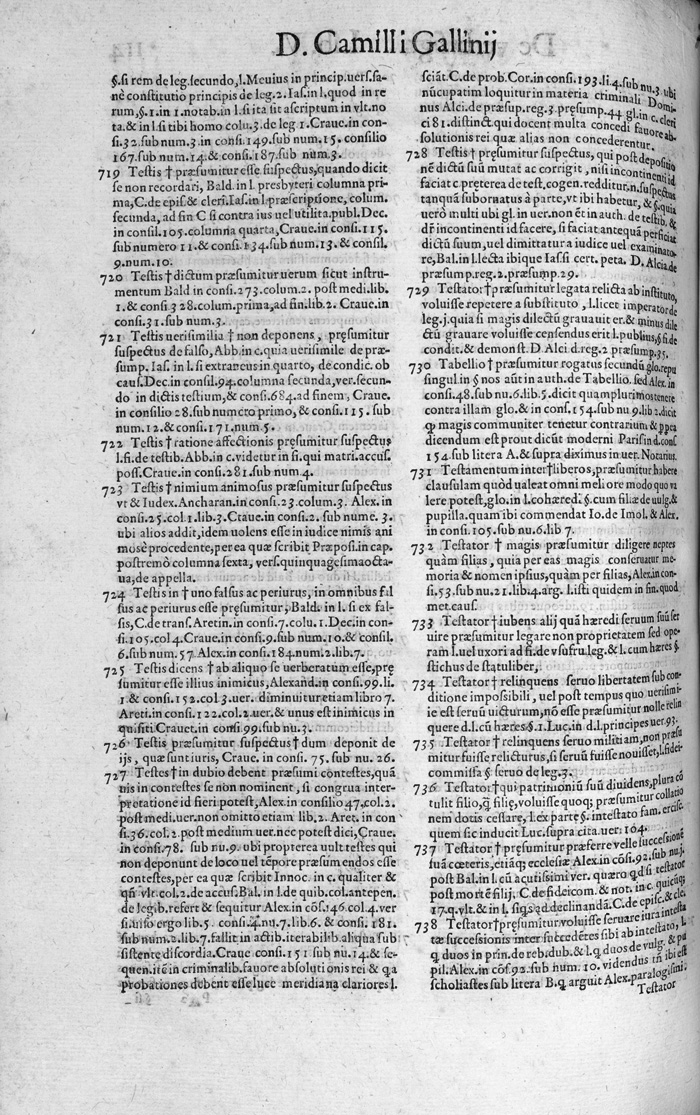 D. Camilli Gallinij
§. si rem de leg. secundo, l. Meuius in princip. uers. sa-
nè constitutio principis de leg. 2. Ias. in l. quod in re
rum, §. 1. in 1. notab. in l. si ita sit ascriptum in vlt. no
ta. & in l. si tibi homo colu. 3. de leg 1. Craue. in con-
si. 32. sub num. 3. in consi. 149. sub num. 15. consilio
167. sub num. 14. & consi. 187. sub num. 3.
719 Testis † præsumitur esse suspectus, quando dicit
se non recordari, Bald. in l. presbyteri columna pri-
ma, C. de epis. & cleri. Ias. in l. præscriptione, colum.
secunda, ad fin C si contra ius uel utilita. publ. Dec.
in consil. 105. columna quarta, Craue. in consi. 115.
sub numero 11. & consi. 134. sub num. 13. & consil.
9. num. 10.
720 Testis † dictum præsumitur uerum sicut instru-
mentum Bald in consi. 273. colum. 2. post medi. lib.
1. & consi 328. colum. prima, ad fin. lib. 2. Craue. in
consi. 31. sub num. 3.
721 Testis uerisimilia † non deponens, pręsumitur
suspectus de falso, Abb. in c. quia uerisimile de præ-
sump. Ias. in l. si extraneus in quarto, de condic. ob
caus. Dec. in consil. 94. columna secunda, ver. secun-
do in dictis testium, & consi. 684. ad finem, Craue.
in consilio 28. sub numero primo, & consi. 115. sub
num. 12. & consi. 171. num. 5.
722 Testis † ratione affectionis pręsumitur suspectus
l. si. de testib. Abb. in c. videtur in si. qui matri. accus.
poss. Craue. in consi. 281. sub num. 4.
723 Testis † nimium animosus præsumitur suspectus
vt & Iudex. Ancharan. in consi. 23. colum. 3. Alex. in
consi. 25. col. 1. lib. 3. Craue. in consi. 2. sub nume. 3.
ubi alios addit, idem uolens esse in iudice nimis ani
mosè procedente, per ea quæ scribit Præposi. in cap.
postremò columna sexta, vers. quinquagesimaocta-
ua, de appella.
724 Testis in † uno falsus ac periurus, in omnibus fal
sus ac periurus esse pręsumitur, Bald. in l. si ex fal-
sis, C. de trans. Aretin. in consi. 7. colu. 1. Dec. in con-
si. 105. col 4. Craue. in consi. 9. sub num. 10. & consil.
6. sub num. 57. Alex. in consi. 184. num. 2. lib. 7.
725 Testis dicens † ab aliquo se uerberatum esse, prę
sumitur esse illius inimicus, Alexand. in consi. 99. li.
1. & consi. 152. col 3. uer. diminuitur etiam libro 7.
Areti. in consi. 122. col. 2. uer. & unus est inimicus in
quisiti Crauet. in consi. 99. sub nu. 3.
726 Testis præsumitur suspectus † dum deponit de
ijs, quæ sunt iuris, Craue. in consi. 75. sub nu. 26.
727 Testes † in dubio debent præsumi contestes, quã
uis in contestes se non nominent, si congrua inter-
pretatione id fieri potest, Alex. in consilio 47. col. 2.
post medi. uer. non omitto etiam lib. 2. Aret. in con
si. 36. col. 2. post medium uer. nec potest dici, Craue.
in consi. 78. sub nu. 9. ubi propterea vult testes qui
non deponunt de loco uel tẽpore præsumendos esse
contestes, per ea quæ scribit Innoc. in c. qualiter &
qñ vlt. col. 2. de accus. Bal. in l. de quib. col. antepen.
de legib. refert & sequitur Alex. in cõs. 146. col. 4. ver
si. uiso ergo lib. 5. consi. 4. nu. 7. lib. 6. & consi. 181.
sub num. 2. lib. 7. fallit in actib. iterabilib. aliqua sub
sistente discordia. Craue consi. 151 sub nu. 14. & se-
quen. itẽ in criminalib. fauore absolutionis rei & q̃a
probationes debent esse luce meridiana clariores l.
sciãt. C. de prob. Cor. in consi. 193. li. 4. sub nu. 3. ubi
nũcupatim loquitur in materia criminali Domi-
nus Alci. de præsup. reg. 3. pręsump. 44 gl. in c. cleri
ci 81. distinct. qui docent multa concedi fauore ab-
solutionis rei quæ alias non concederentur.
728 Testis † pręsumitur suspectus, qui post depositio
nẽ dictũ suũ mutat ac corrigit, nisi incontinenti id
faciat c. pręterea de test. cogen. redditur. n. suspectus
tanquã subornatus à parte, vt ibi habetur, & §. quia
uerò multi ubi gl. in uer. non ẽt in auth. de testib. &
dr̃ incontinenti id facere, si faciat antequã perficiat
dictũ suum, uel dimittatur a iudice uel examinato-
re, Bal. in l. lecta ibique Iassi cert. peta. D. Alcia. de
præsump. reg. 2. præsump. 29.
729 Testator † pręsumitur legata relicta ab instituto,
voluisse repetere a substituto, l. licet imperator de
leg. j. quia si magis dilectũ grauauit er. & minus dile
ctũ grauare voluisse censendus erit l. publius, § si de
condit. & demonst. D. Alci d. reg. 2 præsump. 35.
730 Tabellio † præsumitur rogatus secundũ glo. repu
singul. in § nos aũt in auth. de Tabellio. sed Alex. in
consi. 48. sub nu. 6. lib. 5. dicit quamplurimos tenere
contra illam glo. & in cons. 154. sub nu. 9. lib. 2. dicit
q̃ magis communiter tenetur contrarium & ꝓpea
dicendum est prout dicũt moderni Parisin d. cons
154. sub litera A. & supra diximus in uer. Notarius.
731 Testamentum inter † liberos, præsumitur habere
clausulam quòd ualeat omni meliore modo quo va
lere potest, glo. in l. cohæred. §. cum filiæ de uulg. &
pupilla. quam ibi commendat Io. de Imol. & Alex.
in consi. 105. sub nu. 6. lib 7.
732 Testator † magis præsumitur diligere neptes
quàm filias, quia per eas magis conseruatur me-
moria & nomen ipsius, quàm per filias, Alex. in con-
si. 53. sub nu. 21. lib. 4. arg. l. isti quidem in fin. quod
met. caus.
733 Testator † iubens alij quã hæredi seruum suũ ser
uire præsumitur legare non proprietatem sed ope-
ram l. uel uxori ad fi. de vsufru. leg. & l. cum hæres §.
stichus de statuliber.
734 Testator † relinquens seruo libertatem sub con-
ditione impossibili, uel post tempus quo uerisimi-
le est seruũ uicturum, nõ esse præsumitur nolle relin
quere d. l. cũ hæres §. 1. Luc. in d. l. principes uer. 93.
735 Testator † relinquens seruo militiam, non præsu
mitur fuisse relicturus, si seruũ fuisse nouisset, l. fidei-
commissa § seruo de leg. 3.
736 Testator † qui patrimoniũ suũ diuidens, plura cõ
tulit filio, q̃ filię, voluisse quoq; præsumitur collatio
nem dotis cessare, l. ex parte §. intestato fam. ercisc.
quem sic inducit Luc. supra cita. uer. 104.
737 Testator † præsumitur præferre velle successionẽ
suã cæteris, etiãq; ecclesiæ Alex in cõsi. 92. sub nu. j.
post Bal. in l. cũ acutissimi ver. quæro q̃d si testator
post mortẽ filij. C. de fideicom. & not. in c. quicũq;
17. q. vlt. & in l. si q̃s ad declinandã. C. de episc. & cle.
738 Testator † pręsumitur voluisse seruare iura intesta
tæ successionis inter succedẽtes sibi ab intestato, l.
q duos in prin. de reb. dub. & l. q duos de vulg. & pu
pil. Alex. in cõs. 92. sub num. 10. videndus tñ ibi est
scholiastes sub litera B. q arguit Alex. paralogismi:
Testator